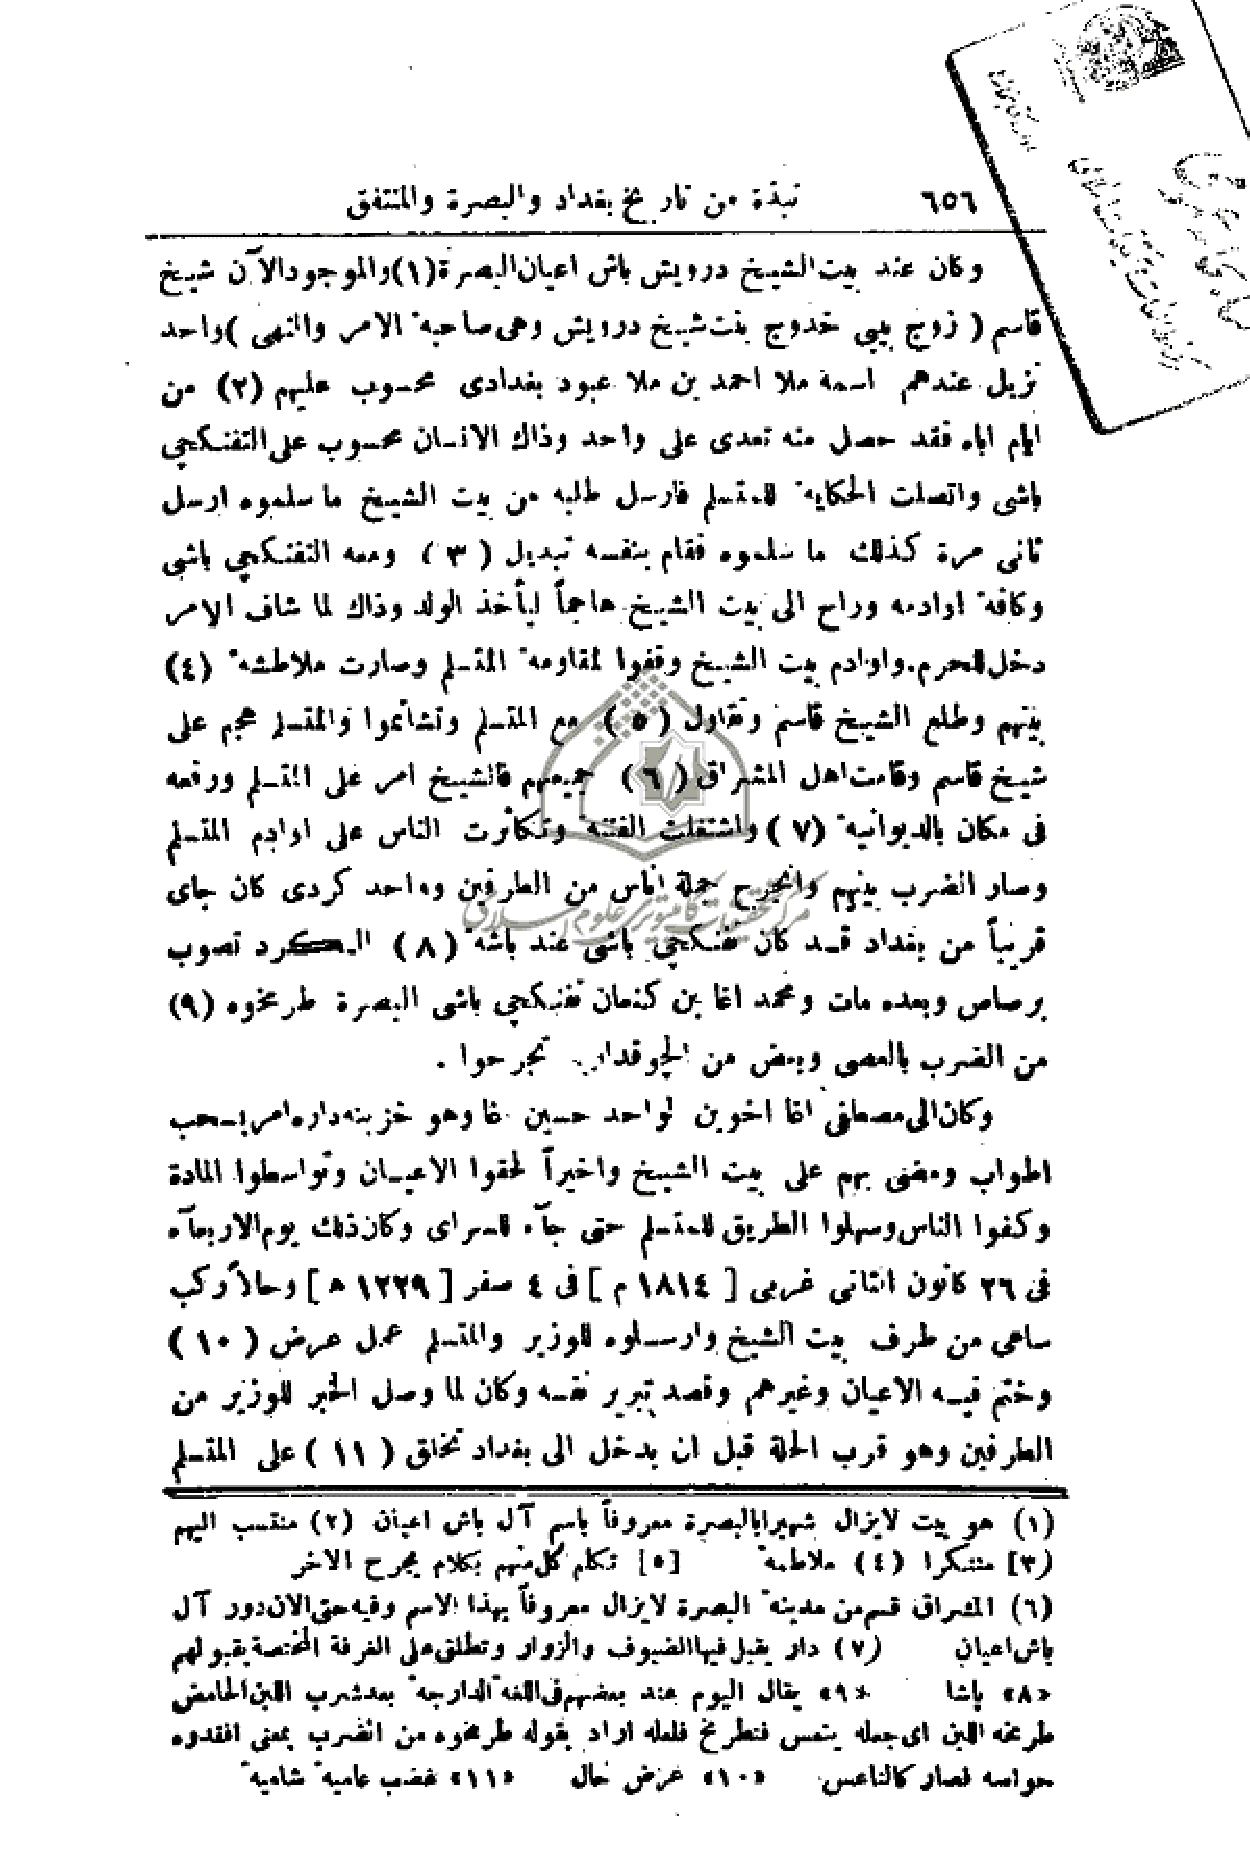 ٦٥٦ نبذة من تاريخ بغداد والبصرة والمنتفق
وكان عند بيت الشيخ درويش باش اعيان البصرة (١) والموجود الآن شيخ
قاسم ( زوج بيبي خدوج بنت شيخ درويش وهى صاحبة الامر والنهى ) واحد
نزيل عندهم اسمه ملا احمد بن ملا عبود بغدادى محسوب عليهم (٢) من
ايام اباه فقد حصل منه تعدى على واحد وذاك الانسان محسوب على التفنكچي
باشى واتصلت الحكاية للمتسلم فارسل طلبه من بيت الشيخ ما سلموه ارسل
ثانى مرة كذلك ما سلموه فقام بنفسه تبديل ( ٣ ) ومعه التفنكچي باشى
وكافة اوادمه وراح الى بيت الشيخ هاجماً ليأخذ الولد وذاك لما شاف الامر
دخل للحرم. واوادم بيت الشيخ وقفوا لمقاومة المتسلم وصارت ملاطشة (٤)
بينهم وطلع الشيخ قاسم وتقاول ( ٥ ) مع المتسلم وتشاتموا والمتسلم هجم على
شيخ قاسم وقامت اهل المشراق ( ٦ ) جميعهم فالشيخ امر على المتسلم ورفعه
فى مكان بالديوانية (٧ ) واشتغلت الفتنة وتكاثرت الناس على اوادم المتسلم
وصار الضرب بينهم وانجرح جملة اناس من الطرفين وواحد كردى كان جاى
قريباً من بغداد قد كان تفنكچي باشى عند باشه ( ٨ ) الكرد تصوب
برصاص وبعده مات ومحمد اغا بن كنعان تفنكچي باشى البصرة طرمخوه (٩)
من الضرب بالعصى وبعض من الچوقدارية تجرحوا .
وكان الى مصطفى اغا اخوين لواحد حسين اغا وهو خزينه داره امر بسحب
اطواب ومضى بهم على بيت الشيخ واخيراً لحقوا الاعيان وتواسطوا المادة
وكفوا الناس وسهلوا الطريق للمتسلم حتى جآء للسراى وكان ذلك يوم الاربعآء
فى ٢٦ كانون الثانى غربى [ ١٨١٤ م ] فى ٤ صفر [ ١٢٢٩ ه ] وحالاً وكب
ساعى من طرف بيت الشيخ وارسلوه للوزير والمتسلم عمل عرض ( ١٠ )
وختم فيه الاعيان وغيرهم وقصد تبرير نفسه وكان لما وصل الخبر للوزير من
الطرفين وهو قرب الحلة قبل ان يدخل الى بغداد تخلق ( ١١ ) على المتسلم
(١) هو بيت لايزال شهيرا بالبصرة معروفاً باسم آل باش اعيان (٢) منتسب اليهم
(٣] متنكرا (٤) ملاطمة [٥] تكلم كل منهم بكلام يجرح الاخر
(٦) المشراق قسم من مدينة البصرة لايزال معروفاً بهذا الاسم وفيه حتى الان دور آل
باش اعيان (٧) دار يقبل فيها الضيوف والزوار وتطلق على الغرفة المختصة بقبولهم
«٨» پاشا «٩» يقال اليوم عند بعضهم فى اللغة الدارجة بعد شرب اللبن الحامض
طرمخه اللبن اى جعله ينعس فتطرمخ فلعله اراد بقوله طرمخوه من الضرب بمعنى افقدوه
حواسه فصار كالناعس «١٠» عرض حال «١١» غضب عامية شامية
مركز تحقيقات كامپيوترى علوم اسلامى